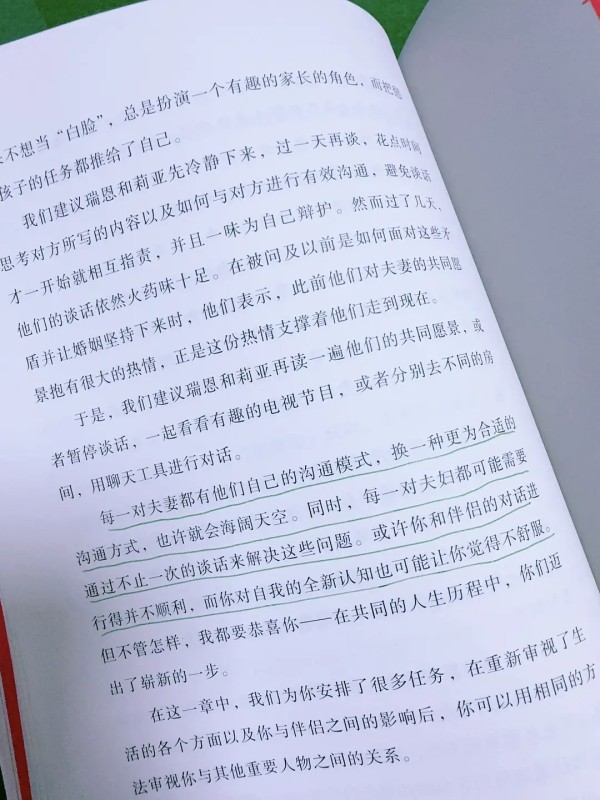 不想当“白脸”，总是扮演一个有趣的家长的角色，而把
孩子的任务都推给了自己。
我们建议瑞恩和莉亚先冷静下来，过一天再谈，花点时间
思考对方所写的内容以及如何与对方进行有效沟通，避免谈话
才一开始就相互指责，并且一味为自己辩护。然而过了几天，
他们的谈话依然火药味十足。在被问及以前是如何面对这些矛
盾并让婚姻坚持下来时，他们表示，此前他们对夫妻的共同愿
景抱有很大的热情，正是这份热情支撑着他们走到现在。
于是，我们建议瑞恩和莉亚再读一遍他们的共同愿景，或
者暂停谈话，一起看看有趣的电视节目，或者分别去不同的房
间，用聊天工具进行对话。
每一对夫妻都有他们自己的沟通模式，换一种更为合适的
沟通方式，也许就会海阔天空。同时，每一对夫妇都可能需要
通过不止一次的谈话来解决这些问题。或许你和伴侣的对话进
行得并不顺利，而你对自我的全新认知也可能让你觉得不舒服。
但不管怎样，我都要恭喜你——在共同的人生历程中，你们迈
出了崭新的一步。
在这一章中，我们为你安排了很多任务，在重新审视了生
活的各个方面以及你与伴侣之间的影响后，你可以用相同的方
法审视你与其他重要人物之间的关系。